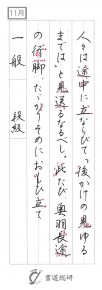 11月
人々は途中に立ならびて、後かげの見ゆる
まではと見送るなるべし。此たび奥羽長途
の行脚、たゞかりそめにおもひ立て
一般 段級
書道総研